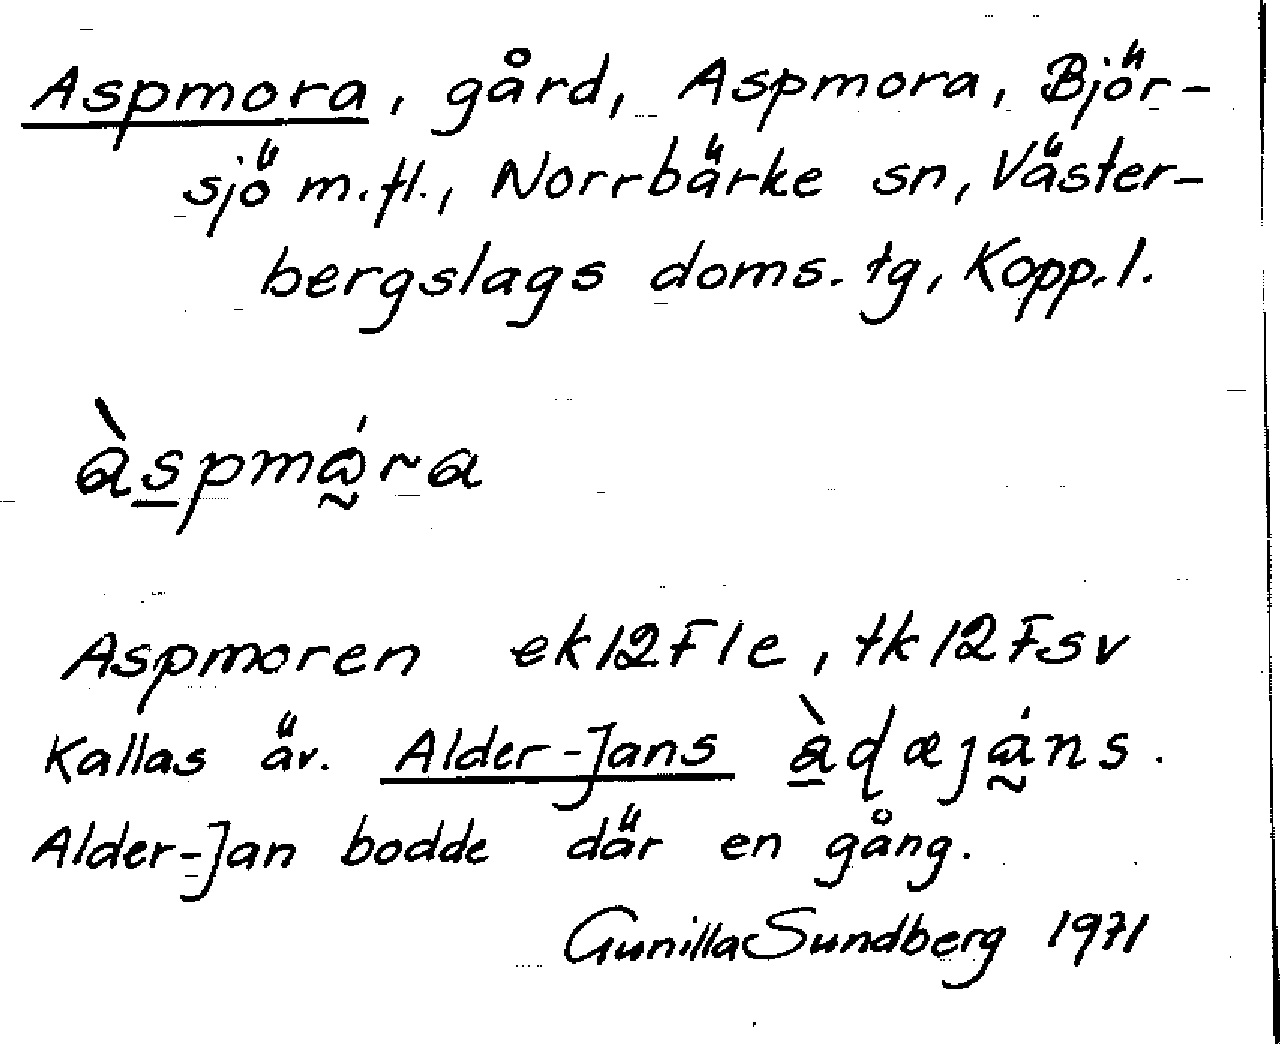 Aspmora, gård, Aspmora, Björ-
sjö m.fl., Norrbärke sn, Väster-
bergslags doms. tg, Kopp. l.
àspmǻ̰ra
Aspmoren ek12F1e, tk12Fsv
Kallas äv. Alder-Jans àɖæjá̰ns.
Alder-Jan bodde där en gång.
Gunilla Sundberg 1971